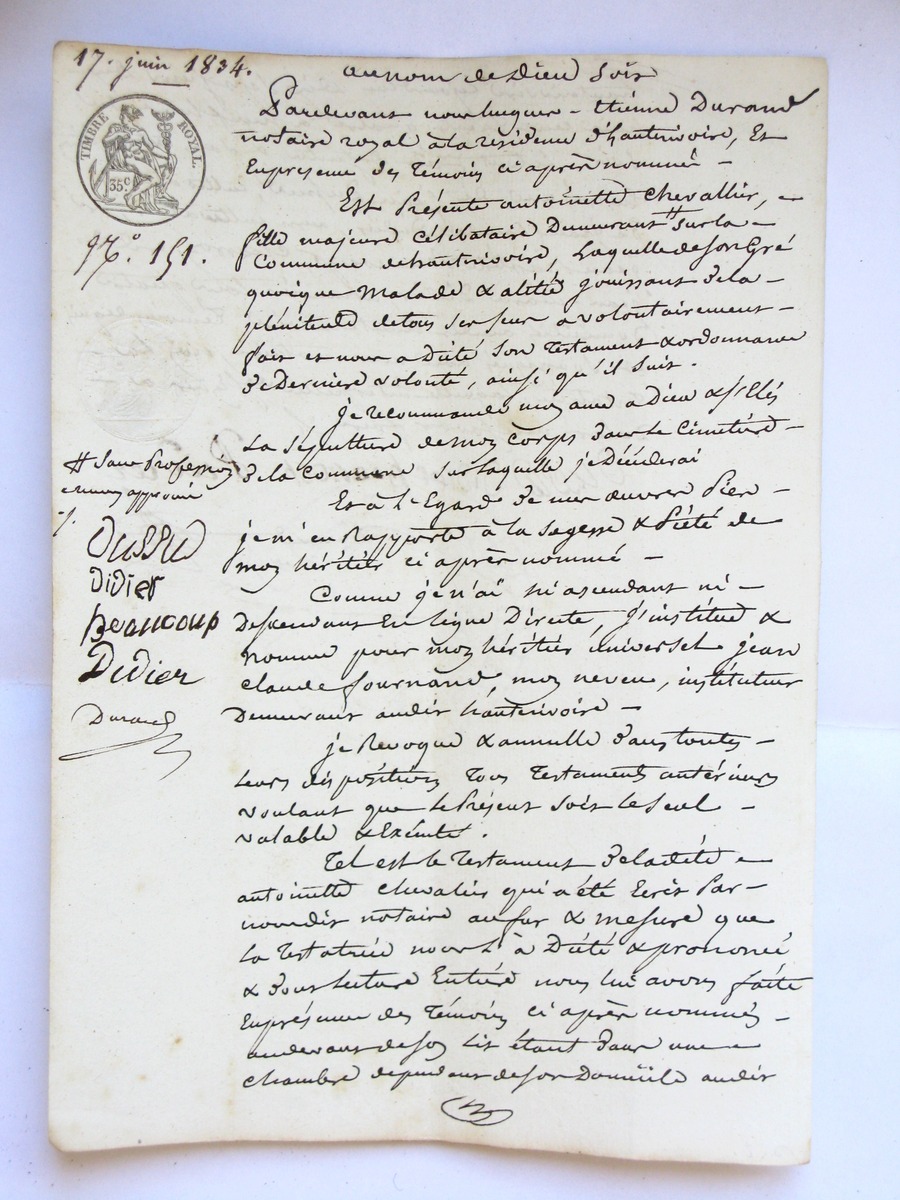 17. juin 1834.
au nom de Dieu soit
TIMBRE ROYAL.
35c
Pardevant nous hugues - Etienne Durand
notaire royal à la résidence d'hauterivoire, Et
En présence des Témoins ci après nommés -
Est Présente antoinette Chevallier, -
N.° 151.
fille majeure Célibataire Demeurant # sur la -
Commune de hauterivoire, Laquelle de Son Gré
quoique Malade & alitée jouissant de la -
plénitude de tous ses sens a volontairement -
fait et nous a Dicté Son Testament & ordonnance
De Dernière volonté, ainsi qu'il suit.
je recommande mon ame a Dieu &
La Sépulture de mon Corps dans le Cimetière -
De la Commune sur laquelle je Décéderai
# Sans Profession
approuvé
Et à l'Egard De mes œuvres Pies -
je m'en Rapporte à la sagesse & Piété de
mon héritier ci après nommé -
Dussud
Didier
beaucoup
Didier
Durand
Comme je n'ai ni ascendant ni -
Descendant En ligne Directe, j'institue &
Nomme pour mon héritier universel jean
claude fournand, mon neveu, instituteur
Demeurant audit hauterivoire -
je Revoque & annulle Dans toutes -
Leurs dispositions Tous Testaments antérieurs
voulant que le Présent Soit le Seul -
valable & Exécuté.
Tel est le Testament De la dite -
antoinette Chevalier qui a été Ecrit Par -
nous dit notaire au fur & mesure que
La Testatrice nous L'à Dicté & prononcé
& Dont Lecture Entière nous lui avons faite
En présence des Témoins ci après nommés -
au devant de son Lit étant Dans une -
chambre dependant de son Domicile audit